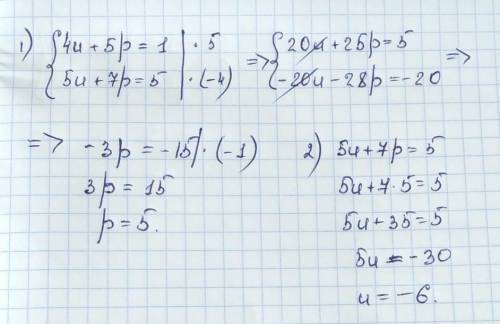 1) { 4u + 5p = 1 | · 5 => { 20u + 25p = 5 =>
5u + 7p = 5 | · (-4) -20u - 28p = -20
=> -3p = -15 | · (-1)
3p = 15
p = 5.
2) 5u + 7p = 5
5u + 7 · 5 = 5
5u + 35 = 5
5u = -30
u = -6.